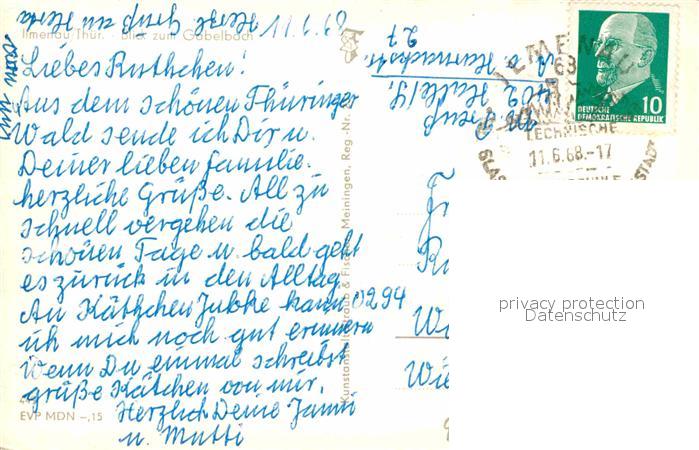 11.6.68
Ilmenau/Thür. · Blick zum Gabelbach
Liebes Ruthchen!
Aus dem schönen Thüringer
Wald sende ich Dir u.
Deiner lieben Familie
herzliche Grüße. All zu
schnell vergehen die
schönen Tage u. bald geht
es zurück in den Alltag.
An Käthchen Jubke kann
ich mich noch gut erinnern
Wenn Du einmal schreibst
grüße Kätchen von mir.
Herzlich Deine
u. Mutti
EVP MDN -,15
Meiningen, Reg.-Nr.
0294
402 Halle/S.
27
ILMENAU
TECHNISCHE
11.6.68.-17
10
DEUTSCHE
DEMOKRATISCHE REPUBLIK
privacy protection
Datenschutz